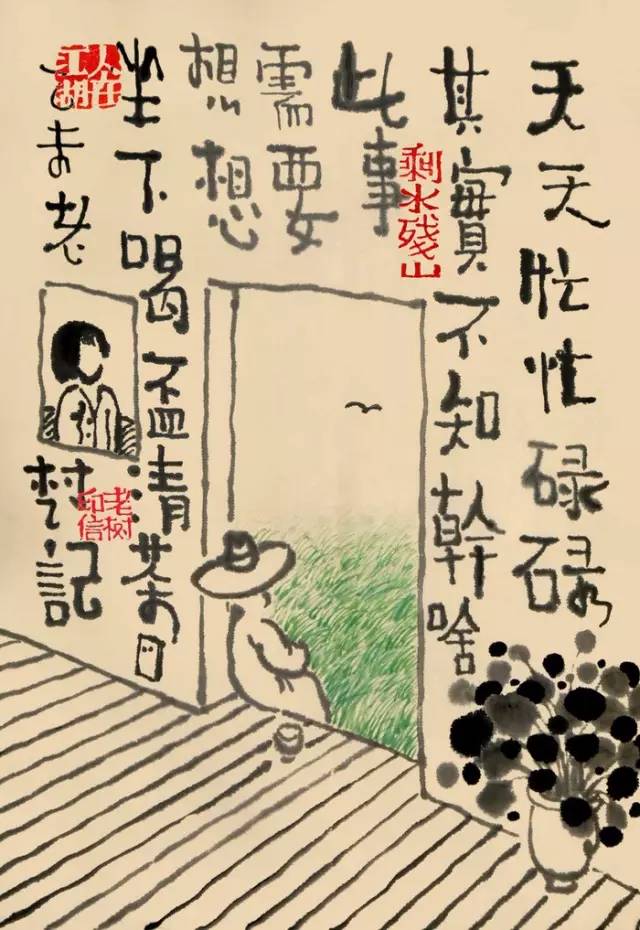 天天忙忙碌碌
其實不知幹啥
此事
需要
想想
坐下喝盃清茶
乙未老
記
人在江湖
剩水殘山
老树印信